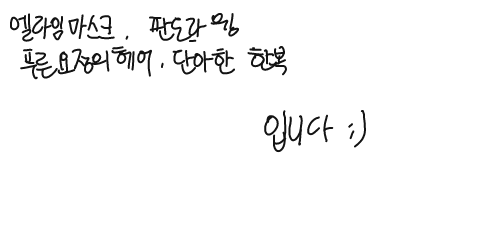 엘라임 마스크, 판도라 망
푸른 요정의 헤어, 단아한 한복
입니다 ;)